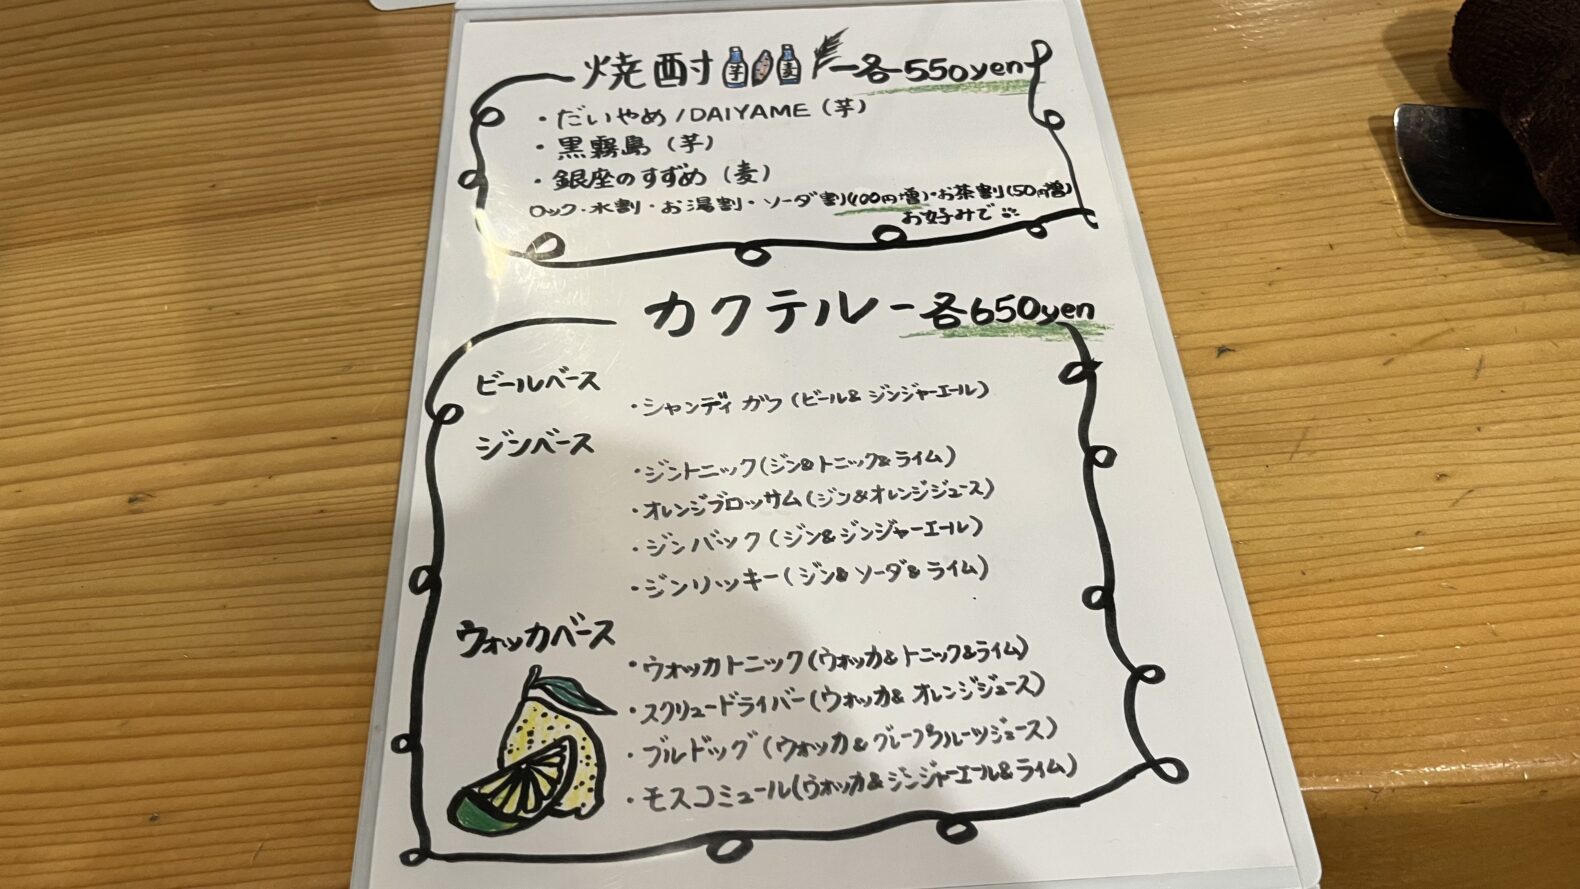 焼酎 芋 麦 ー各550yen
・だいやめ/DAIYAME(芋)
・黒霧島(芋)
・銀座のすずめ(麦)
ロック・水割・お湯割・ソーダ割(100円増)・お茶割(50円増)
お好みで
カクテルー各650yen
ビールベース
・シャンディガフ(ビール&ジンジャーエール)
ジンベース
・ジントニック(ジン&トニック&ライム)
・オレンジブロッサム(ジン&オレンジジュース)
・ジンバック(ジン&ジンジャーエール)
・ジンリッキー(ジン&ソーダ&ライム)
ウォッカベース
・ウォッカトニック(ウォッカ&トニック&ライム)
・スクリュードライバー(ウォッカ&オレンジジュース)
・ブルドッグ(ウォッカ&グレープフルーツジュース)
・モスコミュール(ウォッカ&ジンジャーエール&ライム)